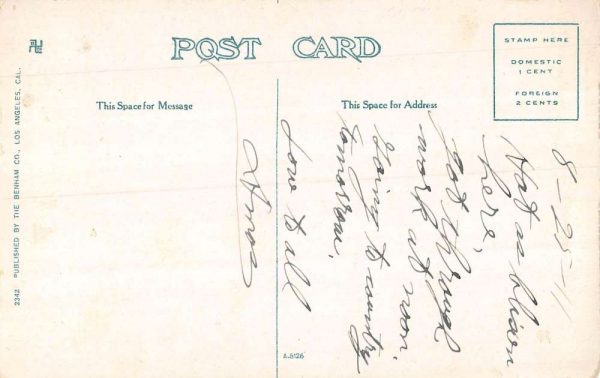 POST CARD
This Space for Message
This Space for Address
STAMP HERE
DOMESTIC
1 CENT
FOREIGN
2 CENTS
2342 PUBLISHED BY THE BENHAM CO., LOS ANGELES, CAL.
A-5126
8-25-11
Hot as
here,
Got through
work at noon.
Going to country
tomorrow.
Love to all
Amos